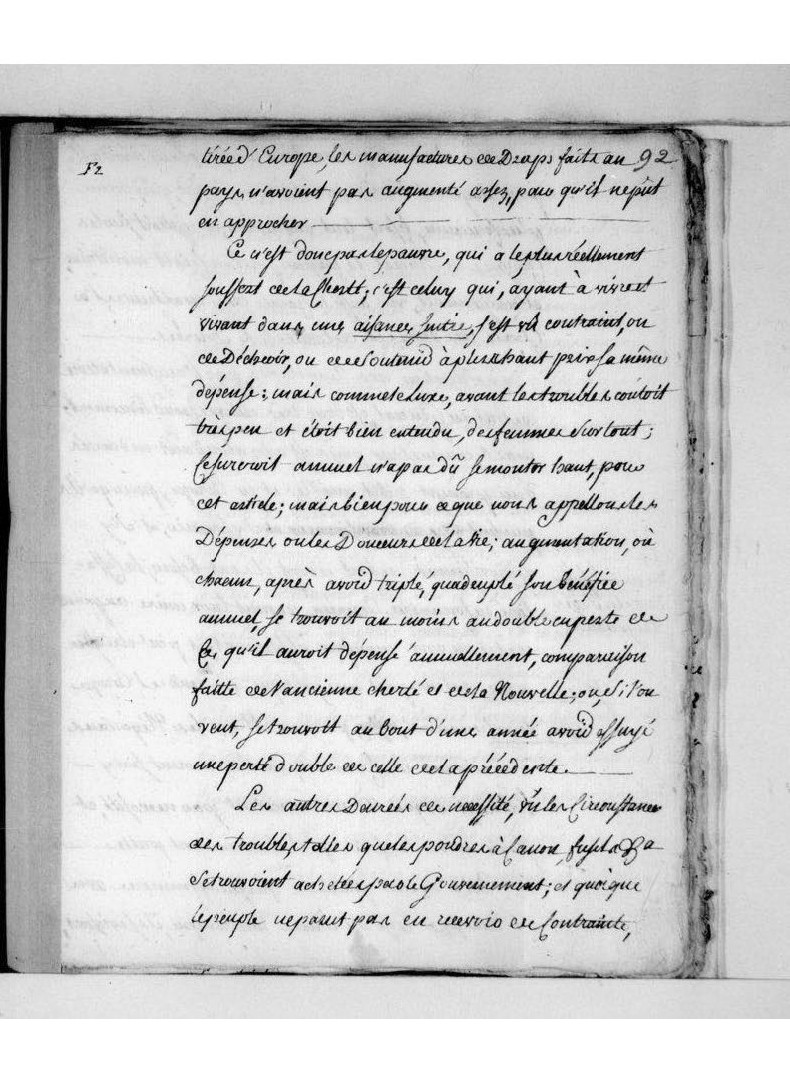 F2
tirée d'Europe, les manufactures de Draps faits au 92
pays n'avoient pas augmenté assez, pour qu'il ne pût
en approcher
Ce n'est donc pas le pauvre, qui a le plus réellement
souffert de la Cherté; c'est celuy qui, ayant à vivre et
vivant dans une aisance, s'est vû contraint, ou
de Déchoir, ou de Soutenir à plus haut prix sa même
dépense: mais comme le luxe, avant les troubles coutoit
très peu et étoit bien entendu, des femmes surtout;
Ce surcroit annuel n'a pas dû se monter haut, pour
cet article; mais bien pour ce que nous appellons les
Dépenses ou les Douceurs de la vie; augmentation, où
chacun, après avoir triplé, quadruplé son bénéfice
annuel, se trouvoit au moins au double en perte de
Ce, qu'il auroit dépensé annuellement, comparaison
faitte de l'ancienne cherté et de la Nouvelle; ou, Si l'on
veut, se trouvoit au bout d'une année avoir essuyé
une perte double de celle de la précédente.
Les autres Denrées de necessité, vû les Circonstances
des troubles, telles que les poudres à Canon, fusils &a
Se trouvoient achetées par le Gouvernement; et quoique
le peuple ne parut pas en recevoir de Contrainte,